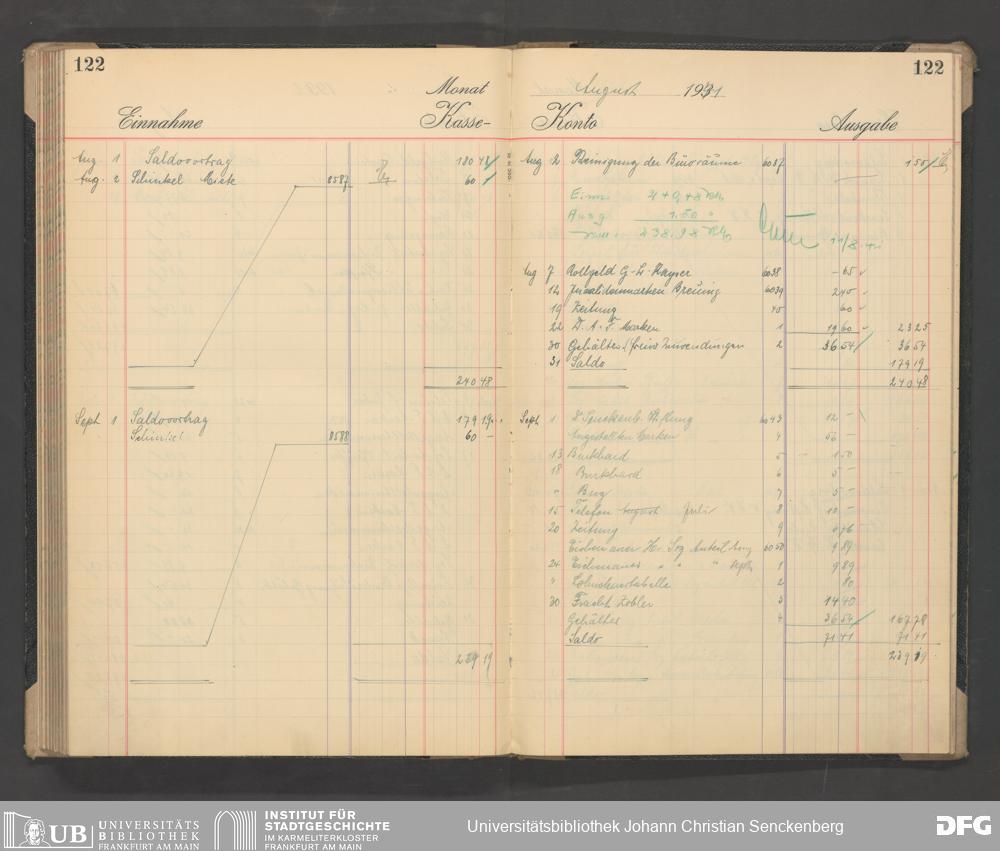 122
Monat
Einnahme
Kasse-
Aug 1 Saldovortrag 180 48
Aug. 2 Schinkel Miete 8587 60
240 48
Sept 1 Saldovortrag 179 19
Schinkel 8588 60 –
239 19
122
August 1941
Konto
Ausgabe
Aug 2 Reinigung der Büroräume 6037 1 50
Einn. 240,48 RM
Ausg 1.50 "
238.98 RM
11/8. 41
Aug 7 Rollgeld 6038 – 65
12 Invalidenmarken Breunig 6039 2 40
19 Zeitung 40 60
22 D.A.F. Marken 1 19 60 23 25
30 Gehälter 2 36 54 36 54
31 Saldo 179 19
240 48
Sept. 1 6043 12 –
Angestellten Marken 4 56 –
13 Burkhard 5 1 50
18 Burkhard 6 5 –
" 7 5 –
15 Telefon August Juli 8 10 –
20 Zeitung 9
6050 9 89
24 " " " Sept 1 9 89
" Lohnsteuertabelle 2 80
30 Fracht 3 14 40
Gehälter 4 36 54 167 78
Saldo 71 41 71 41
239 19
UB UNIVERSITÄTS
BIBLIOTHEK
FRANKFURT AM MAIN
INSTITUT FÜR
STADTGESCHICHTE
IM KARMELITERKLOSTER
FRANKFURT AM MAIN
Universitätsbibliothek Johann Christian Senckenberg
DFG